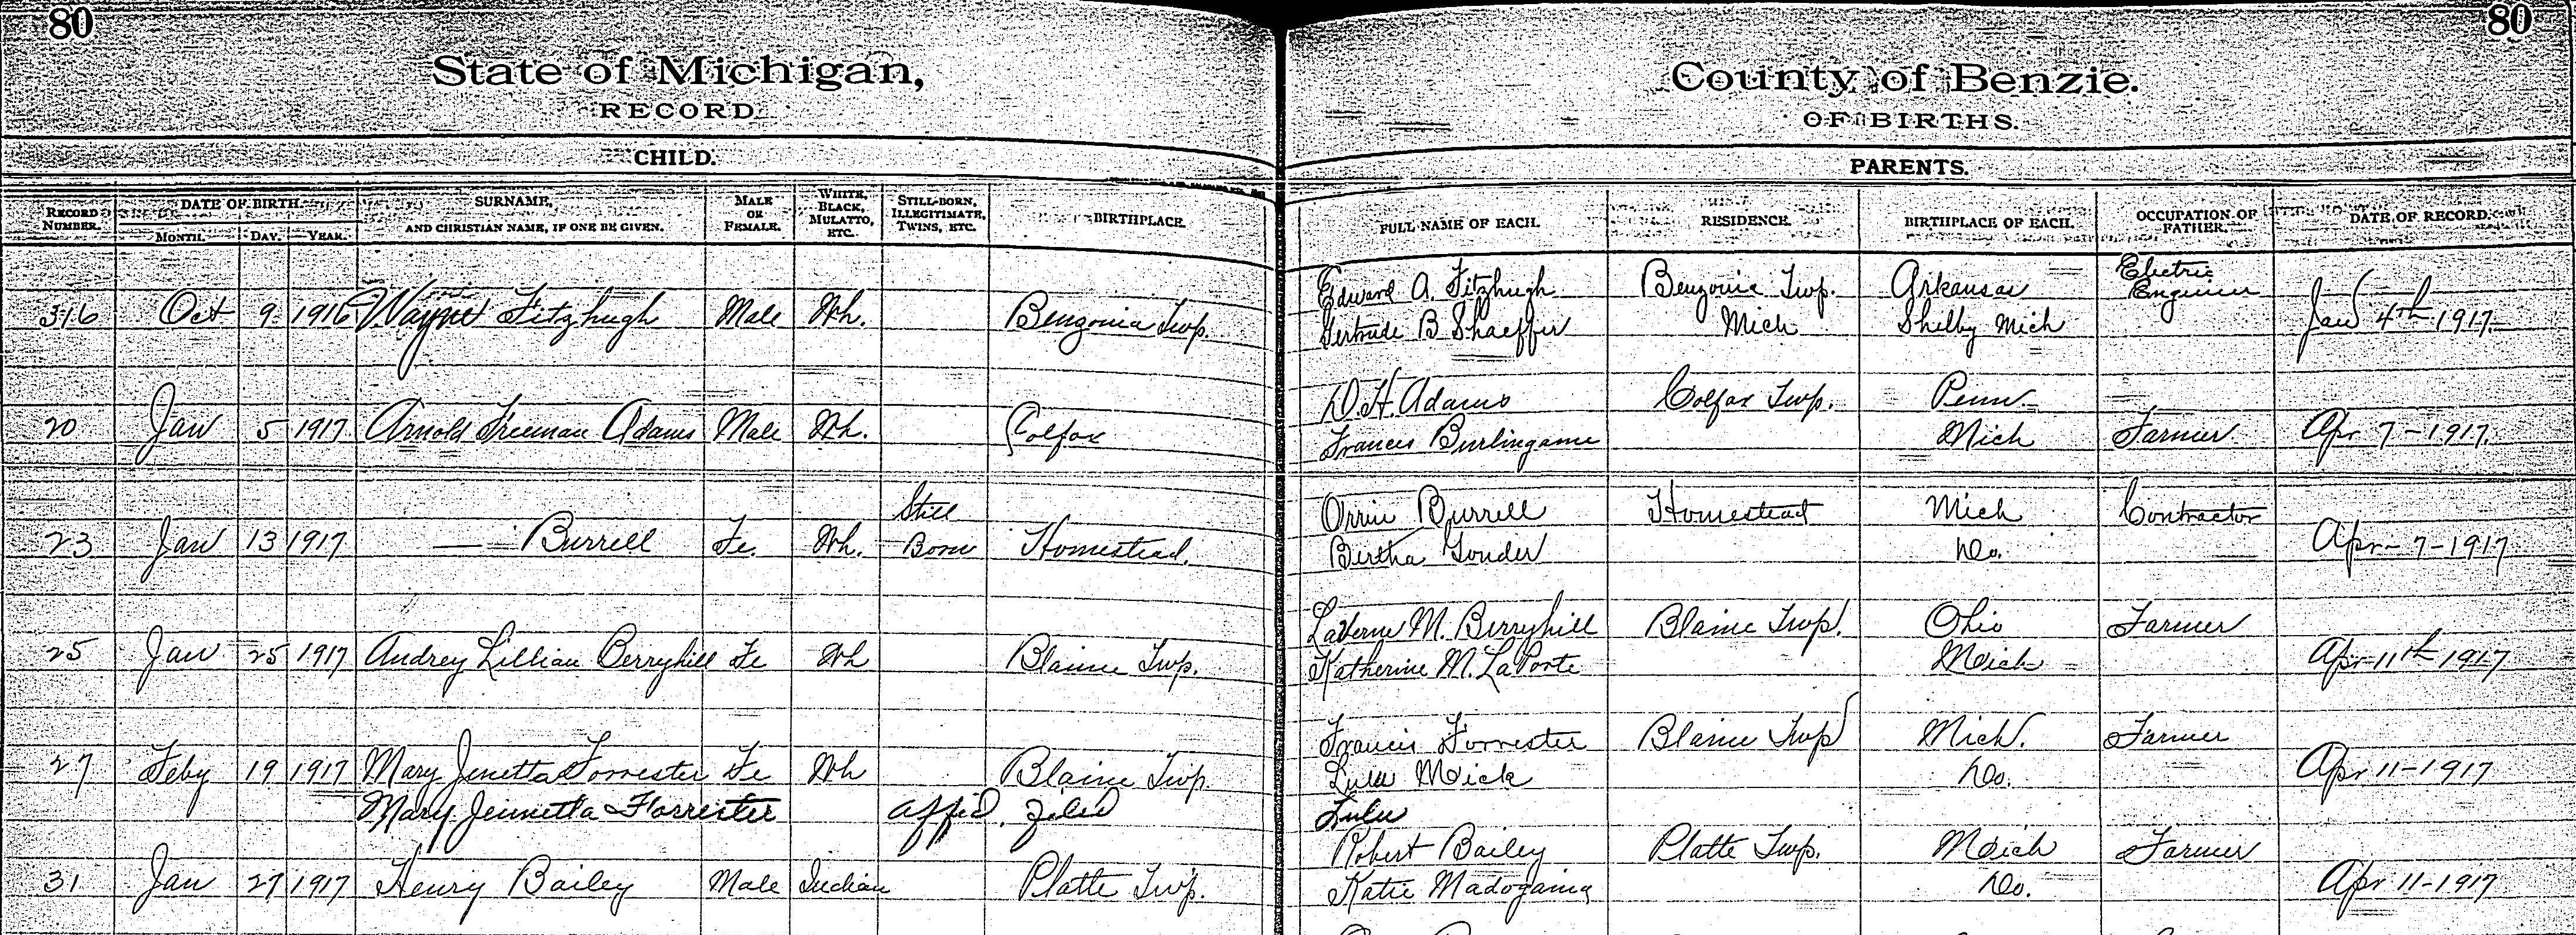 80
80
State of Michigan,
County of Benzie.
RECORD
OF BIRTHS.
CHILD.
PARENTS.
RECORD NUMBER. DATE OF BIRTH. MONTH. DAY. YEAR. SURNAME, AND CHRISTIAN NAME, IF ONE BE GIVEN. MALE OR FEMALE. WHITE, BLACK, MULATTO, ETC. STILL-BORN, ILLEGITIMATE, TWINS, ETC. BIRTHPLACE. FULL NAME OF EACH. RESIDENCE. BIRTHPLACE OF EACH. OCCUPATION OF FATHER. DATE OF RECORD.
Edward A. Fitzhugh Benzonia Twp. Arkansas Electric Engineer
316 Oct 9 1916 Wayne Fitzhugh Male Wh. Benzonia Twp. Gertrude B Shaeffer Mich Shelby Mich Jan 4th 1917
D. H. Adams Colfax Twp. Penn
20 Jan 5 1917 Arnold Freeman Adams Male Wh. Colfax Frances Burlingame Mich Farmer Apr 7-1917.
Orrin Burrell Homestead Mich Contractor
23 Jan 13 1917 — Burrell Fe. Wh. Still Born Homestead. Bertha Gonder Do. Apr-7-1917
LaVerne M. Berryhill Blaine Twp. Ohio Farmer
25 Jan 25 1917 Audrey Lillian Berryhill Fe Wh Blaine Twp. Katherine M. LaPorte Mich Apr 11th 1917
Francis Forrester Blaine Twp Mich. Farmer
27 Feby 19 1917 Mary Jenetta Forrester Fe Wh Blaine Twp. Lula Mick Do. Apr 11-1917
Mary Jennetta Forrester affid. filed Lulu
Robert Bailey Platte Twp. Mich Farmer
31 Jan 27 1917 Henry Bailey Male Indian Platte Twp. Katie Do. Apr 11-1917